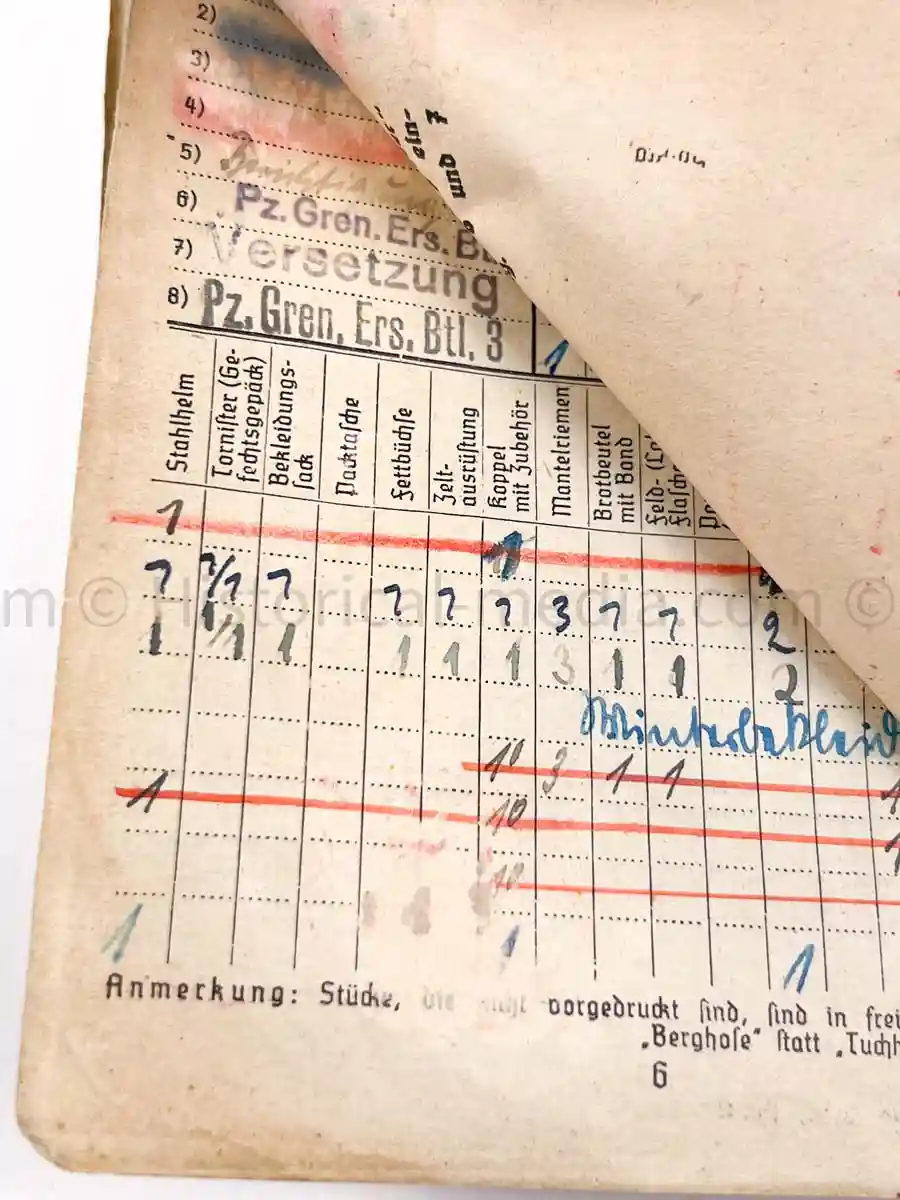 2)
3)
4)
5)
6) Pz. Gren. Ers.
7) Versetzung
8) Pz. Gren. Ers. Btl. 3
1
ein-
und 7
Stahlhelm
Tornister (Ge-
fechtsgepäck)
Bekleidungs-
sack
Packtasche
Fettbüchse
Zelt-
ausrüstung
Koppel
mit Zubehör
Mantelriemen
Brotbeutel
mit Band
Feld-
flasche
1 1
1 1/1 1 1 1 1 3 1 1 2
1 1/1 1 1 1 1 3 1 1 2
Winterbekleid
10 3 1 1 1
1 10 1
10
1 1 1
1 1 1
Anmerkung: Stücke, die nicht vorgedruckt sind, sind in frei
„Berghose“ statt „Tuchh
6
m © Historical-media.com ©